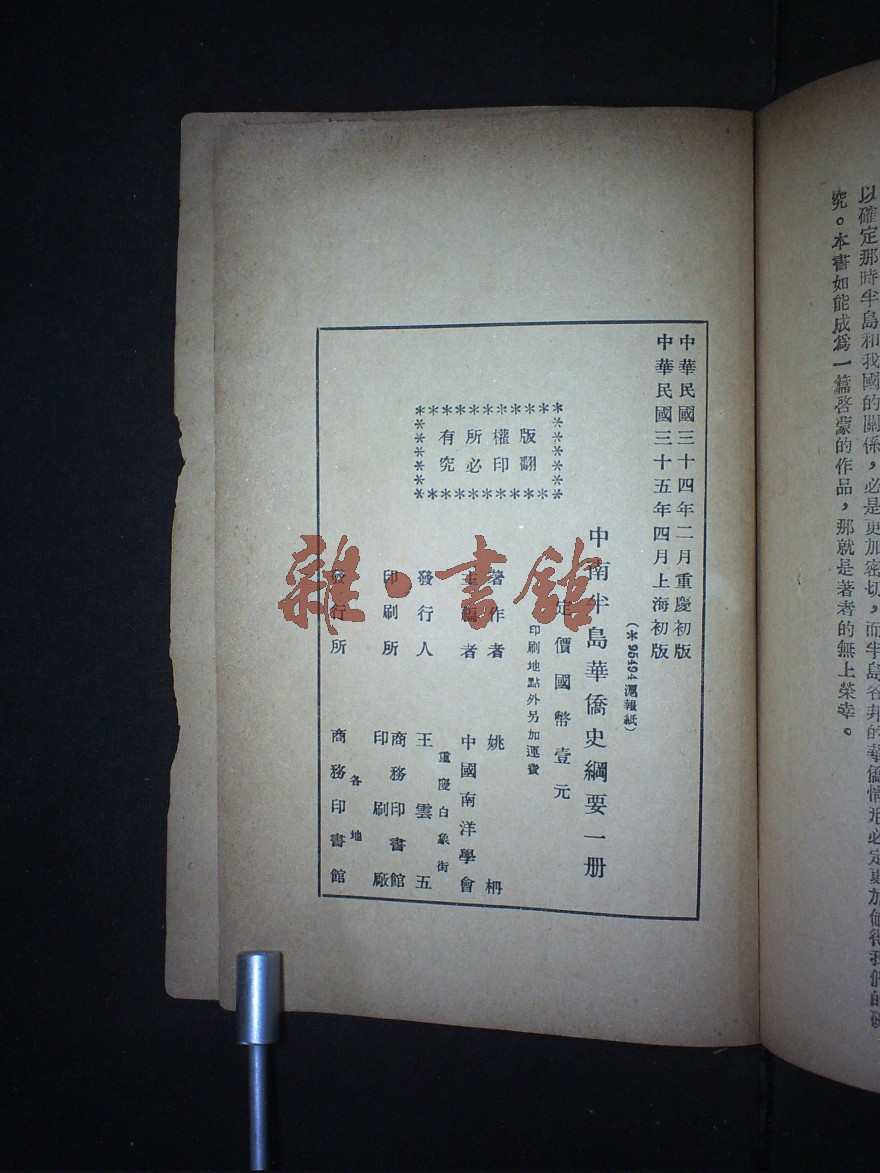 以確定那時半島和我國的關係，必是更加密切，而半島各邦的華僑情形必定更加值得我們的研
究。本書如能成爲一篇啓蒙的作品，那就是著者的無上榮幸。
中華民國三十四年二月重慶初版
中華民國三十五年四月上海初版
(＊95494滬報紙)
中南半島華僑史綱要一册
定價國幣壹元
印刷地點外另加運費
版權所有
翻印必究
著作者 姚枬
主編者 中國南洋學會
重慶白象街
發行人 王雲五
印刷所 商務印書館
印刷廠
各地
發行所 商務印書館
雜·書館